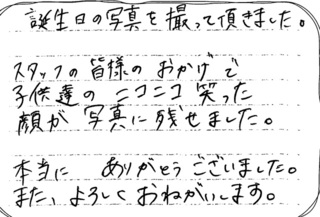 誕生日の写真を撮って頂きました。
スタッフの皆様のおかげで
子供達のニコニコ笑った
顔が写真に残せました。
本当に ありがとうございました。
また、よろしくおねがいします。